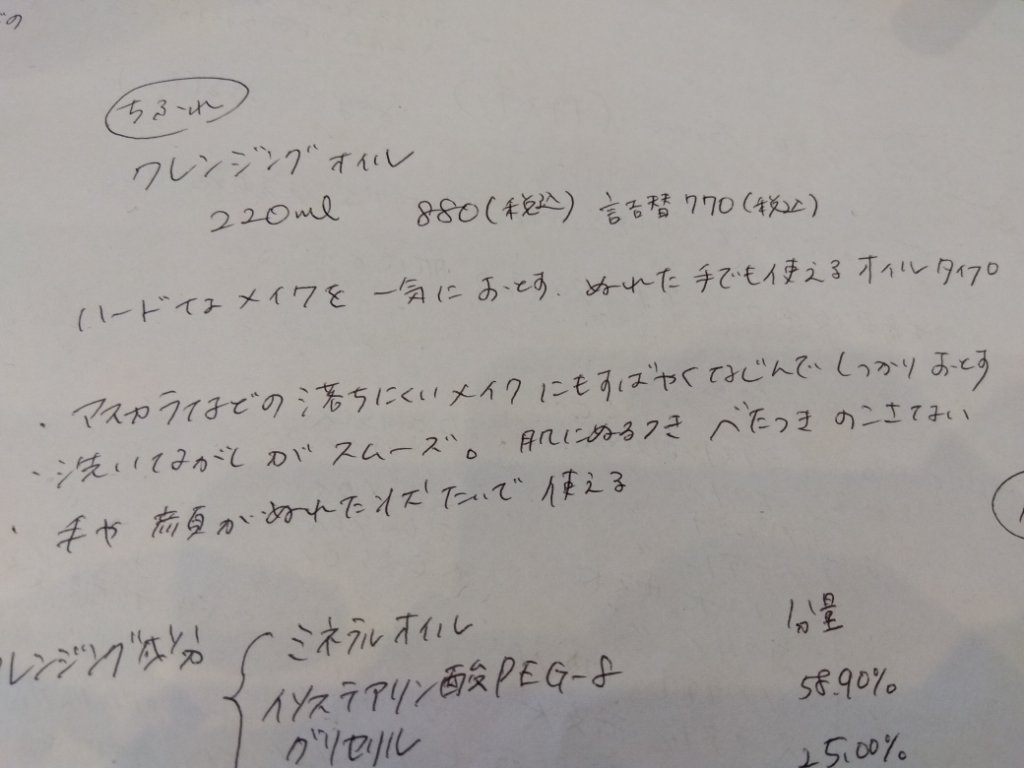 どの
ちふれ
クレンジングオイル
220ml 880(税込) 詰替770(税込)
ハードなメイクを一気におとす. ぬれた手でも使えるオイルタイプ
・マスカラなどの落ちにくいメイクにもすばやくなじんでしっかりおとす
・洗いながしがスムーズ。肌にぬるつき べたつき のこさない
・手や顔がぬれた状だたいで使える
レンジング成分 ミネラルオイル 分量
イソステアリン酸PEG-8 58.90%
グリセリル 25.00%